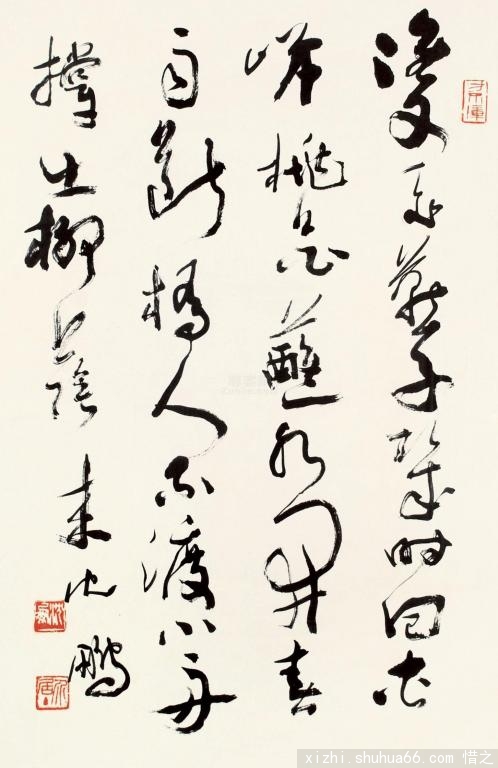 雙飛燕子幾時回夾
岸桃花蘸水開春
雨斷橋人不渡小舟
撐出柳陰來 沈鵬
xizhi.shuhua66.com 惜之